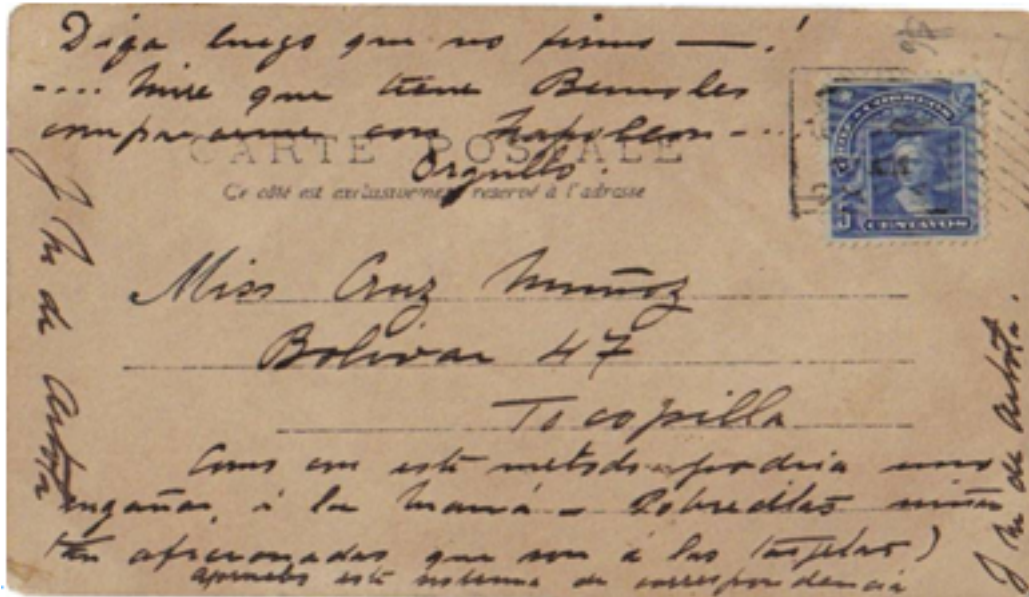 Diga luego que no firmo —.!
.... Mire que tiene Bemoles
compararme con Napoleon ---
Orgullo.
CARTE POSTALE
Ce côté est exclusivement réservé à l'adresse
CENTAVOS
Miss Cruz Muñoz
Bolivar 47
Tocopilla
Como con este metodo podria uno
engañar á la mamá - Pobrecitas niñas
tan aficionadas que son á las tarjetas)
este sistema de correspondencia
J M de
J M de